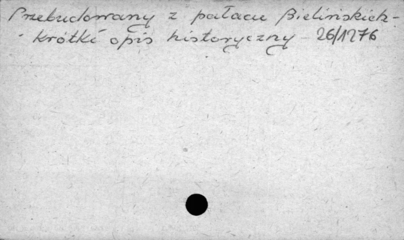 Przebudowany z pałacu Bielińskich -
- krótki opis historyczny - 26/1276